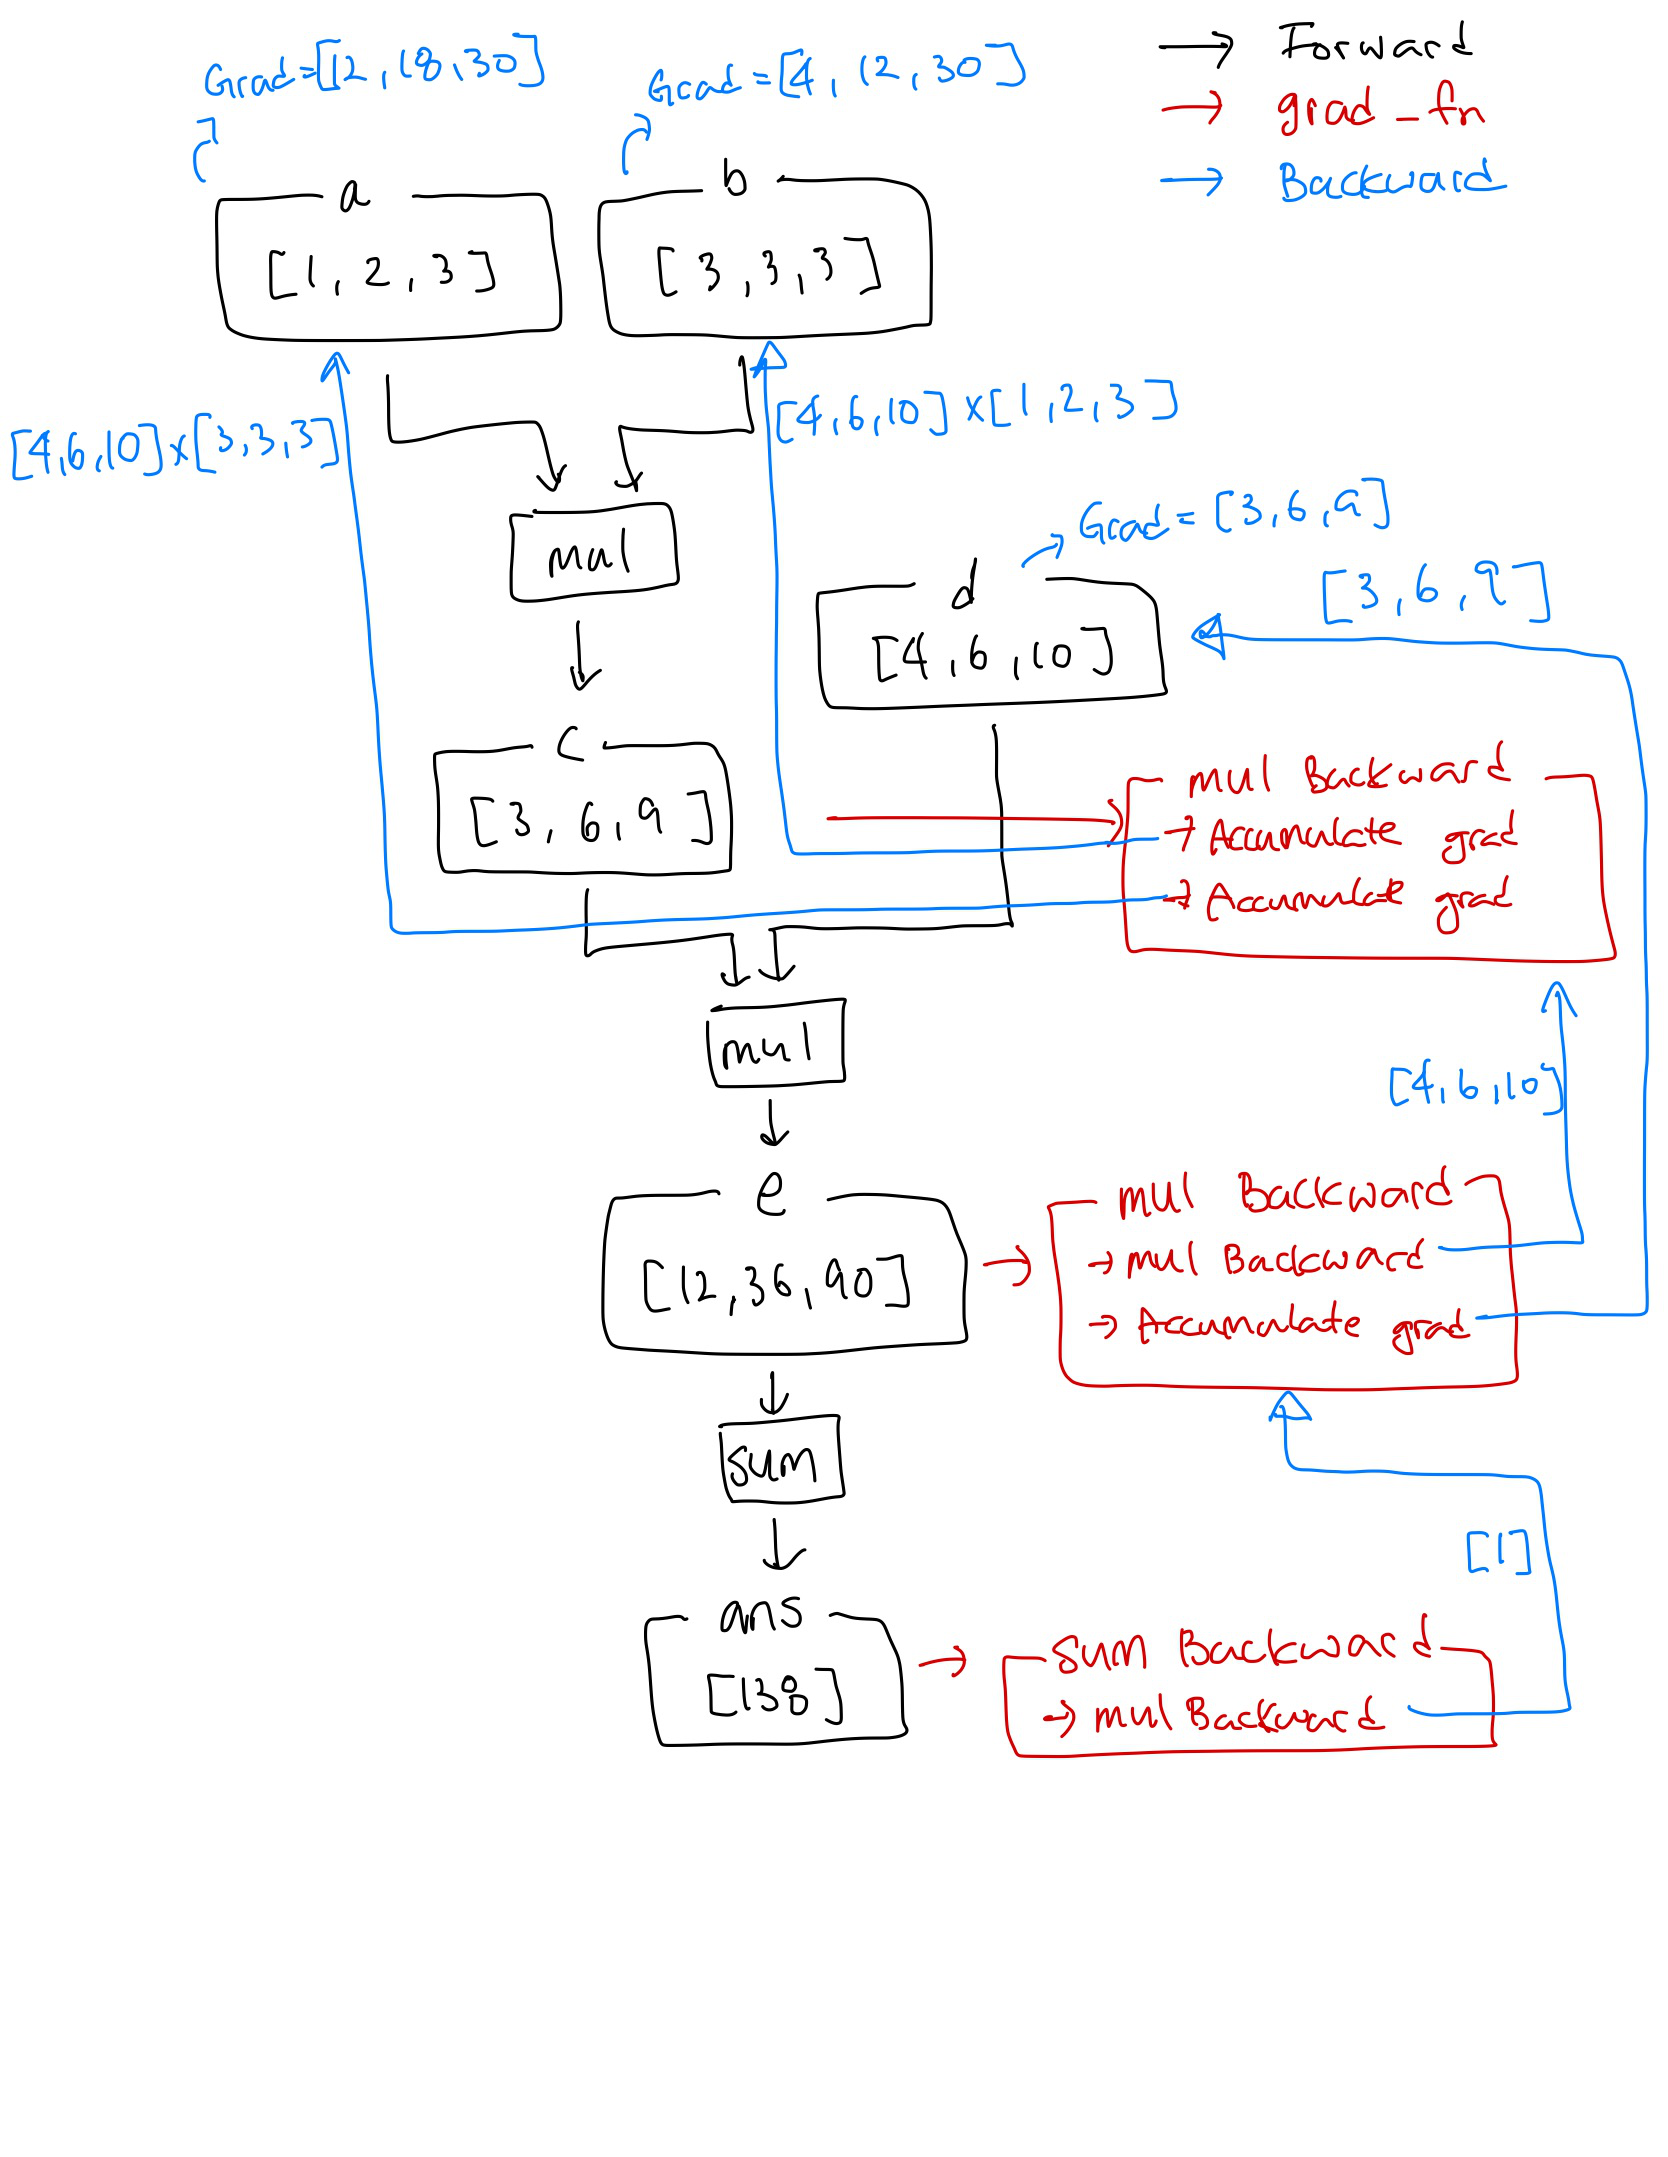 Grad=[12,18,30]
Grad=[4,12,30]
Forward
grad_fn
Backward
a
[1,2,3]
b
[3,3,3]
[4,6,10]x[3,3,3]
[4,6,10]x[1,2,3]
mul
Grad=[3,6,9]
[3,6,9]
d
[4,6,10]
c
[3,6,9]
mul Backward
→ Accumulate grad
→ Accumulate grad
mul
[4,6,10]
e
[12,36,90]
mul Backward
→ mul Backward
→ Accumulate grad
sum
[1]
ans
[138]
sum Backward
→ mul Backward